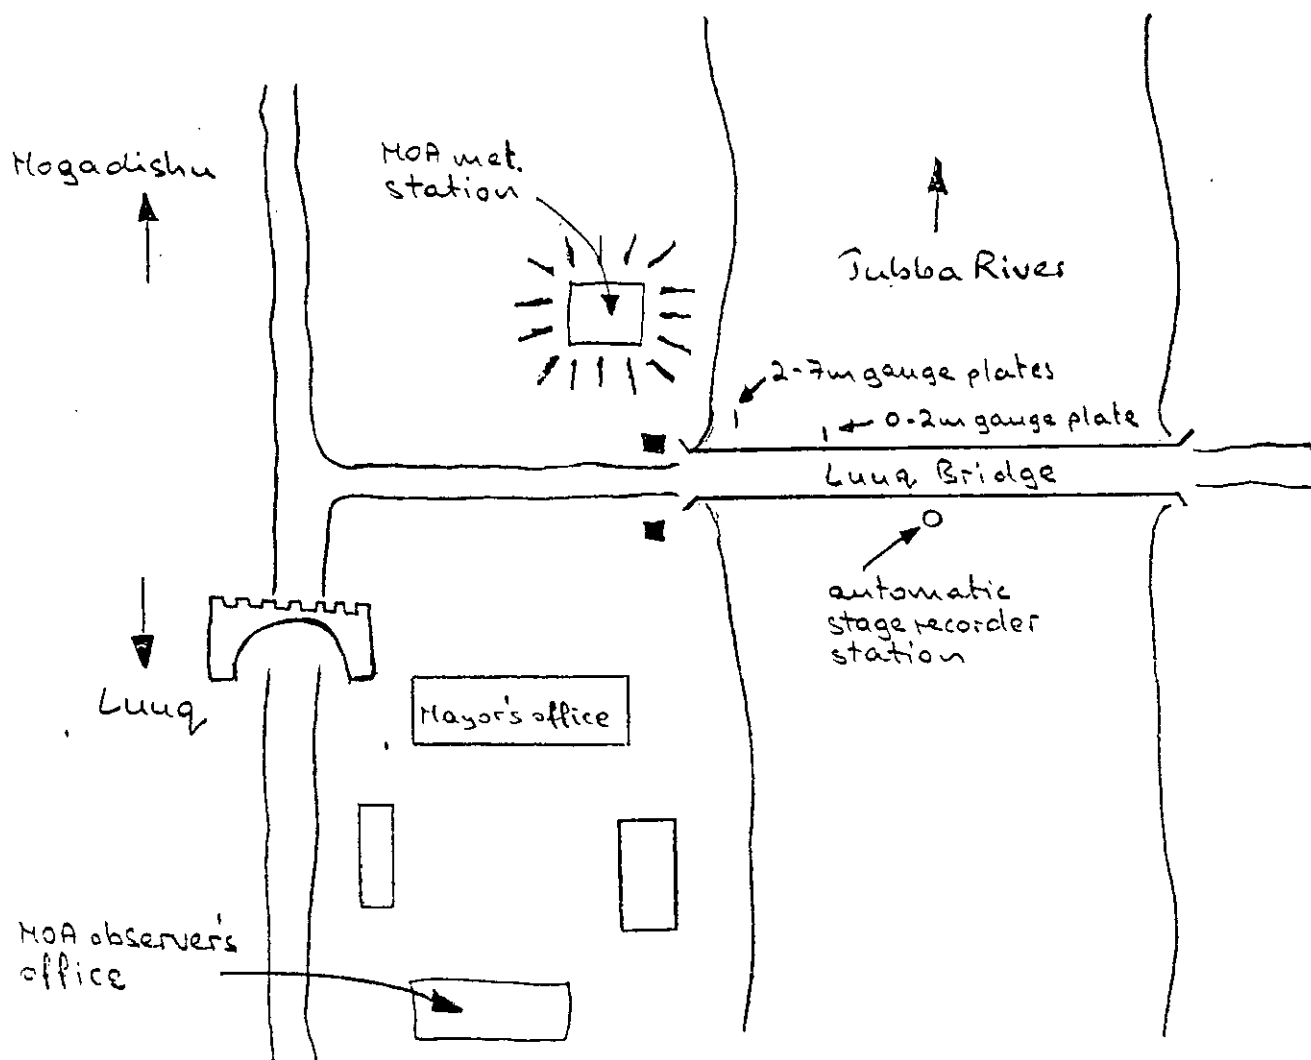 Mogadishu
MOA met.
station
Jubba River
2-7m gauge plates
0-2m gauge plate
Luuq Bridge
automatic
stage recorder
station
Luuq
Mayor's office
MOA observer's
office